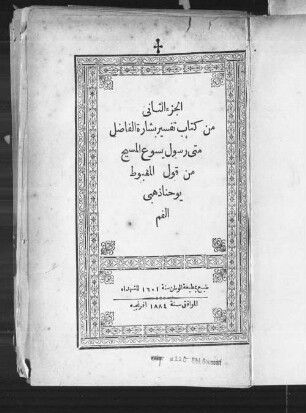 الجزء الثانى
من كتاب تفسير بشارة الفاضل
متى رسول يسوع المسيح
من قول المغبوط
يوحنا ذهبى
الفم
طبع بمطبعة الوطن سنة ١٦٠١ للشهداء
الموافق سنة ١٨٨٤ افرنجيه